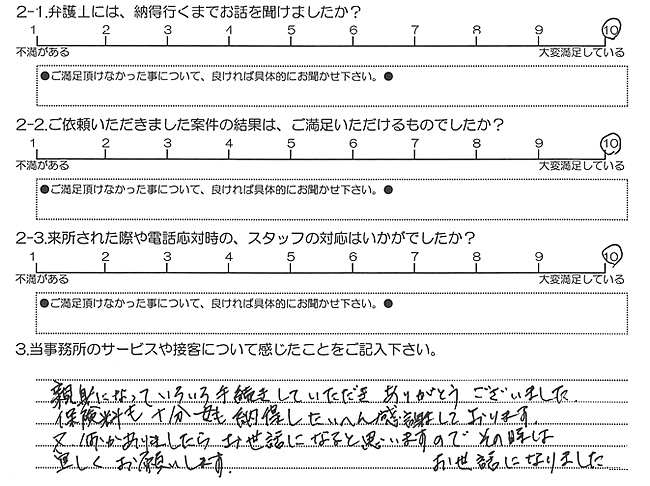 2-1.弁護士には、納得行くまでお話を聞けましたか？
1 2 3 4 5 6 7 8 9 10
不満がある 大変満足している
●ご満足頂けなかった事について、良ければ具体的にお聞かせ下さい。●
2-2.ご依頼いただきました案件の結果は、ご満足いただけるものでしたか？
1 2 3 4 5 6 7 8 9 10
不満がある 大変満足している
●ご満足頂けなかった事について、良ければ具体的にお聞かせ下さい。●
2-3.来所された際や電話応対時の、スタッフの対応はいかがでしたか？
1 2 3 4 5 6 7 8 9 10
不満がある 大変満足している
●ご満足頂けなかった事について、良ければ具体的にお聞かせ下さい。●
3.当事務所のサービスや接客について感じたことをご記入下さい。
親身になっていろいろ手続きしていただき ありがとう ございました.
保険料も十分 納得したいへん感謝しております.
又、何かありましたら お世話になると思いますので その時は
宜しく お願いします. お世話になりました